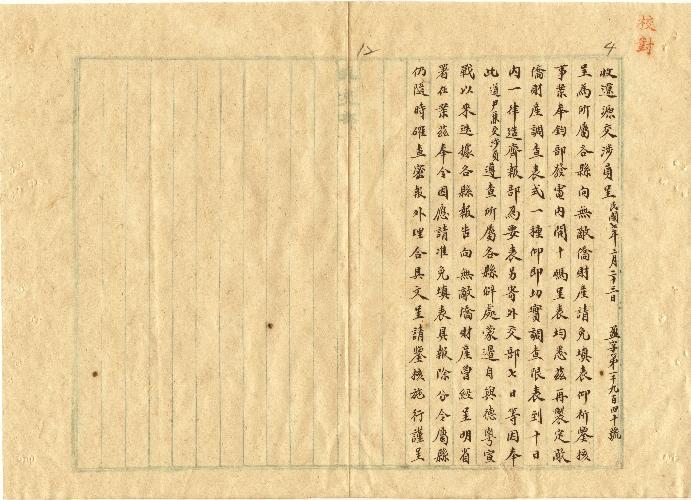 校對
4
12
收遼源交涉員呈 民國七年二月二十三日 盈字第一千九百四十號
呈為所屬各縣向無敵僑財產請免填表仰祈鑒核
事業奉鈞部發電內開十碼呈表均悉茲再製定敵
僑財產調查表式一種仰即切實調查限表到十日
內一律造齊報部為要表另寄外交部七日等因奉
此道尹兼交涉員遵查所屬各縣僻處蒙邊自與德奧宣
戰以來迭據各縣報告向無敵僑財產曾經呈明省
署在業茲奉令因應請准免填表具報除分令屬縣
仍隨時確查密報外理合具文呈請鑒核施行謹呈